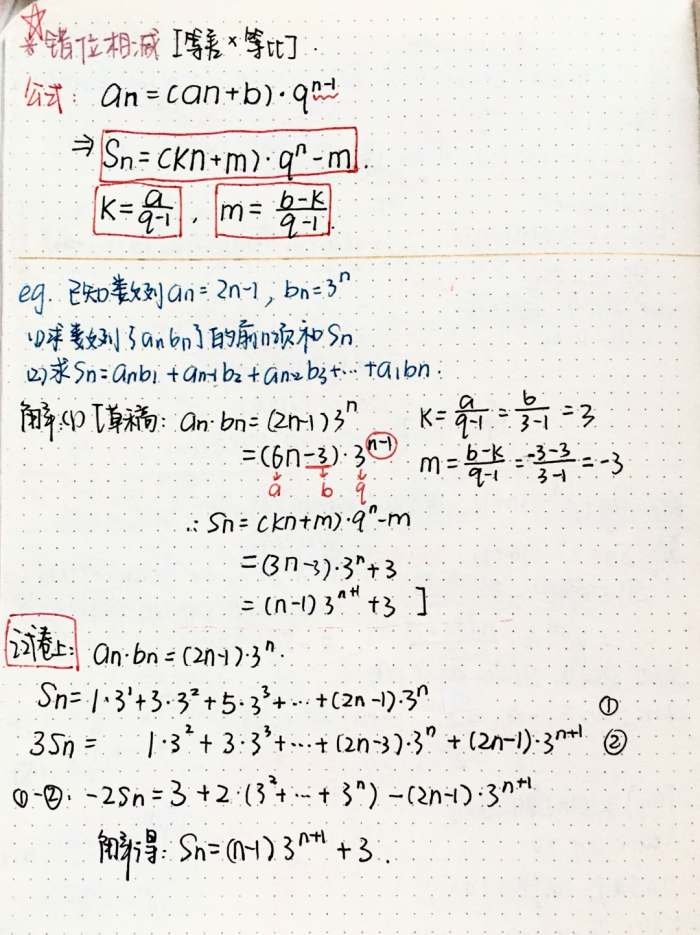 ☆※错位相减 [等差×等比].
公式: an=(an+b)·q^(n-1)
⇒ Sn=(kn+m)·q^n-m.
k=a/(q-1), m=(b-k)/(q-1).
eg. 已知数列an=2n-1, bn=3^n
(1)求数列{anbn}的前n项和Sn
(2)求Sn=anb1+an-1b2+an-2b3+…+a1bn.
解:(1) [草稿: an·bn=(2n-1)3^n
=(6n-3)·3^(n-1)
a b q
k=a/(q-1)=6/(3-1)=3
m=(b-k)/(q-1)=(-3-3)/(3-1)=-3
∴Sn=(kn+m)·q^n-m
=(3n-3)·3^n+3
=(n-1)3^(n+1)+3 ]
试卷上: an·bn=(2n-1)·3^n.
Sn=1·3^1+3·3^2+5·3^3+…+(2n-1)·3^n ①
3Sn= 1·3^2+3·3^3+…+(2n-3)·3^n+(2n-1)·3^(n+1) ②
①-②: -2Sn=3+2·(3^2+…+3^n)-(2n-1)·3^(n+1)
解得: Sn=(n-1)3^(n+1)+3.